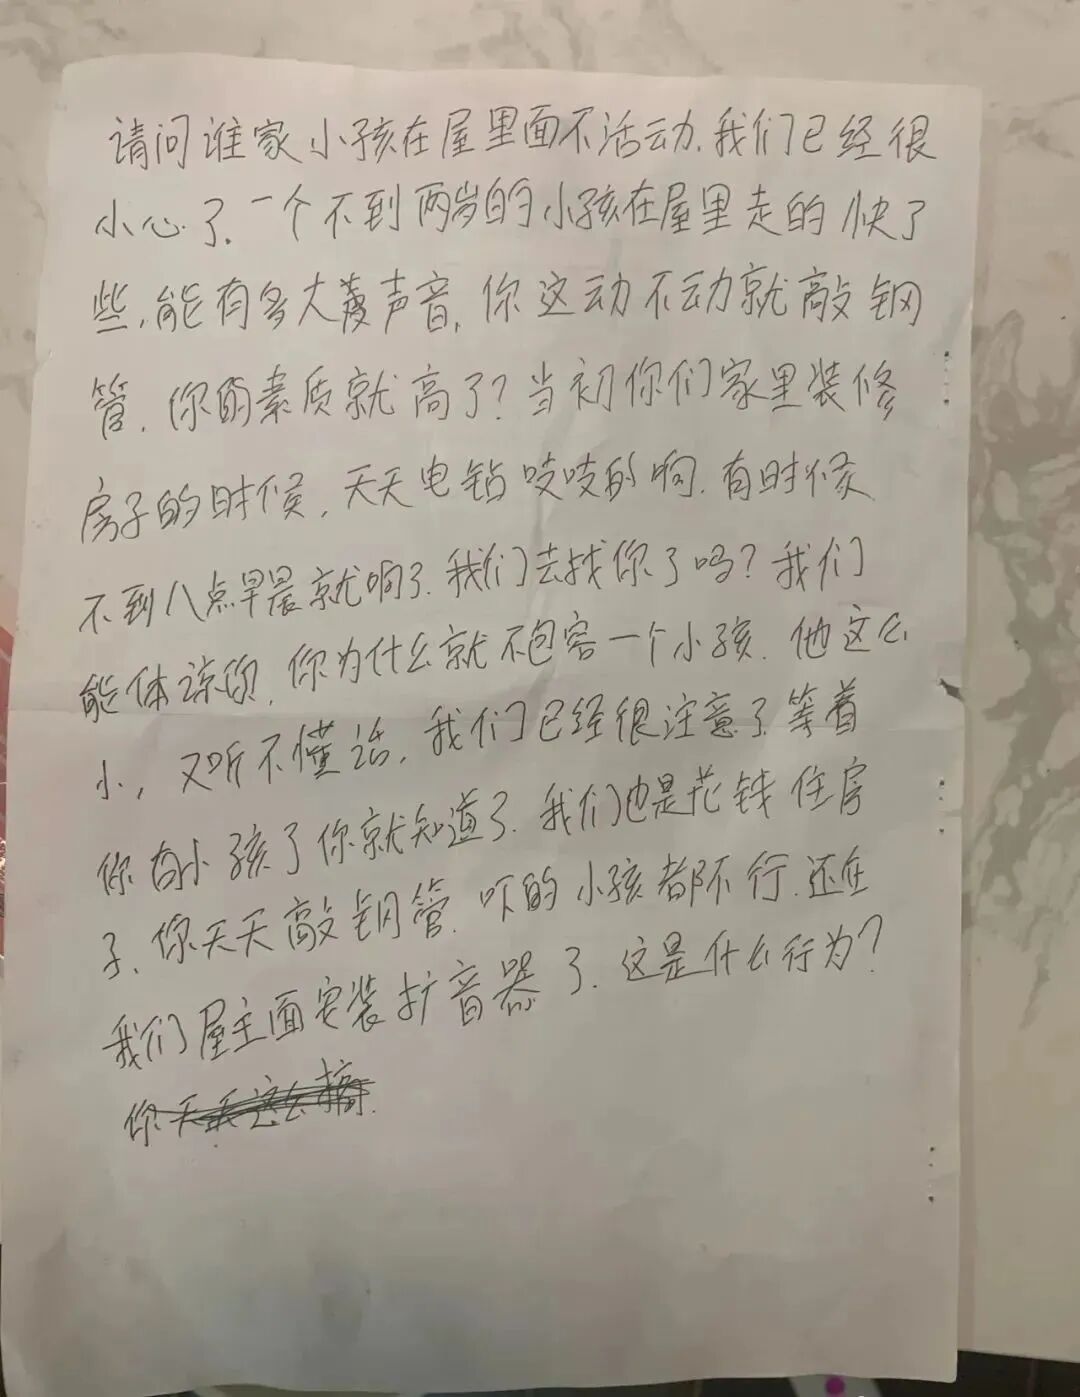 请问谁家小孩在屋里面不活动.我们已经很
小心了.一个不到两岁的小孩在屋里走的快了
些.能有多大声音.你这动不动就敲钢
管.你的素质就高了?当初你们家里装修
房子的时候,天天电钻吱吱的响.有时候
不到八点早晨就响了.我们去找你了吗?我们
能体谅你.你为什么就不包容一个小孩.他这么
小,又听不懂话,我们已经很注意了.等着
你有小孩了你就知道了.我们也是花钱住房
子、你天天敲钢管.吓的小孩都不行.还在
我们屋主面安装扩音器了.这是什么行为?
你天天这么搞.